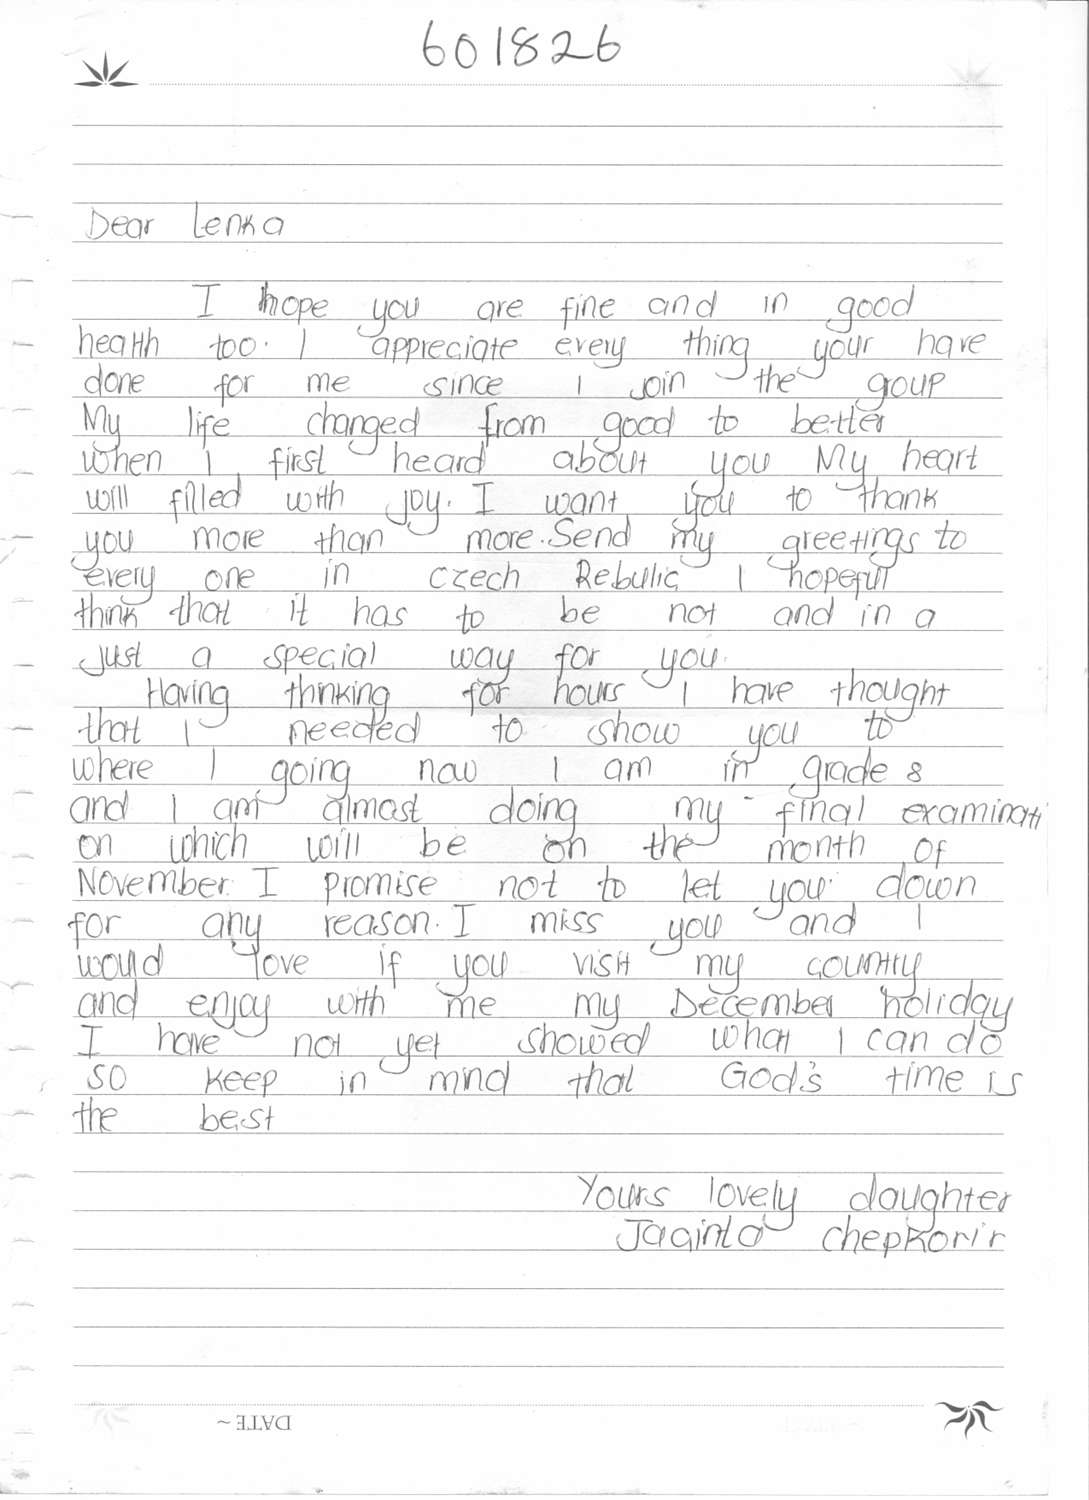 601826
Dear Lenka
I hope you are fine and in good
health too. I appreciate every thing your have
done for me since I join the goup
My life changed from good to better
when I first heard about you My heart
will filled with joy. I want you to thank
you more than more. Send my greetings to
every one in Czech Rebulic I hopeful
think that it has to be not and in a
just a special way for you.
Having thinking for hours I have thought
that I needed to show you to
where I going now I am in grade 8
and I am almost doing my final examinati
on which will be on the month of
November. I promise not to let you down
for any reason. I miss you and I
would love if you visit my country
and enjoy with me my December holiday
I have not yet showed what I can do
so keep in mind that God's time is
the best
Yours lovely daughter
Jaginta chepkorir
DATE ~